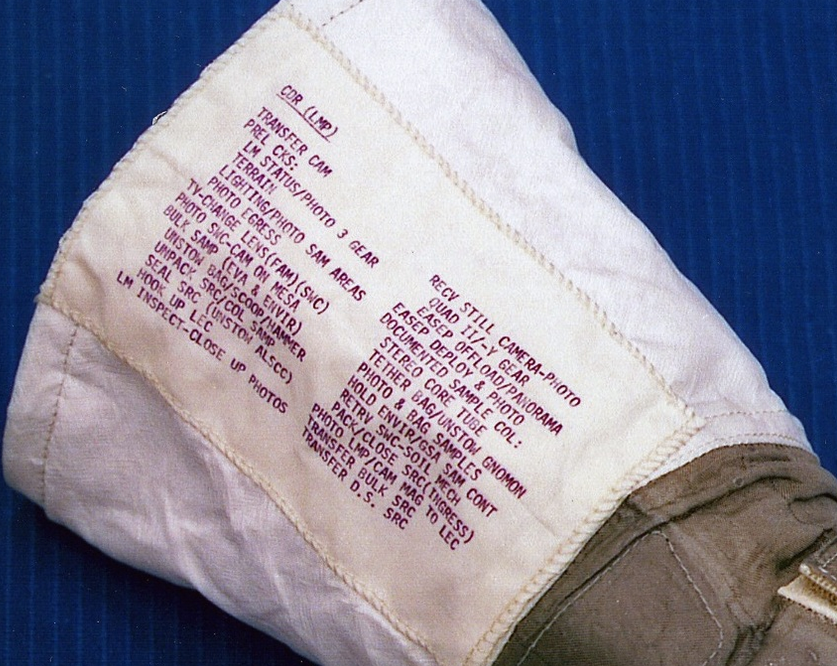 CDR (LMP)
TRANSFER CAM
PREL CKS:
LM STATUS/PHOTO 3 GEAR
TERRAIN
LIGHTING/PHOTO SAM AREAS
PHOTO EGRESS
TV-CHANGE LENS(FAM)(SWC)
PHOTO SWC-CAM ON MESA
BULK SAMP (EVA & ENVIR)
UNSTOW BAG/SCOOP/HAMMER
UNPACK SRC/COL SAMP
SEAL SRC (UNSTOW ALSCC)
HOOK UP LEC
LM INSPECT-CLOSE UP PHOTOS
RECV STILL CAMERA-PHOTO
QUAD II/-Y GEAR
EASEP OFFLOAD/PANORAMA
EASEP DEPLOY & PHOTO
DOCUMENTED SAMPLE COL:
STEREO CORE TUBE
TETHER BAG/UNSTOW GNOMON
PHOTO & BAG SAMPLES
HOLD ENVIR/ SAM CONT
RETRV SWC-SOIL MECH
PACK/CLOSE SRC(INGRESS)
PHOTO LMP/CAM MAG TO LEC
TRANSFER BULK SRC
TRANSFER D.S. SRC